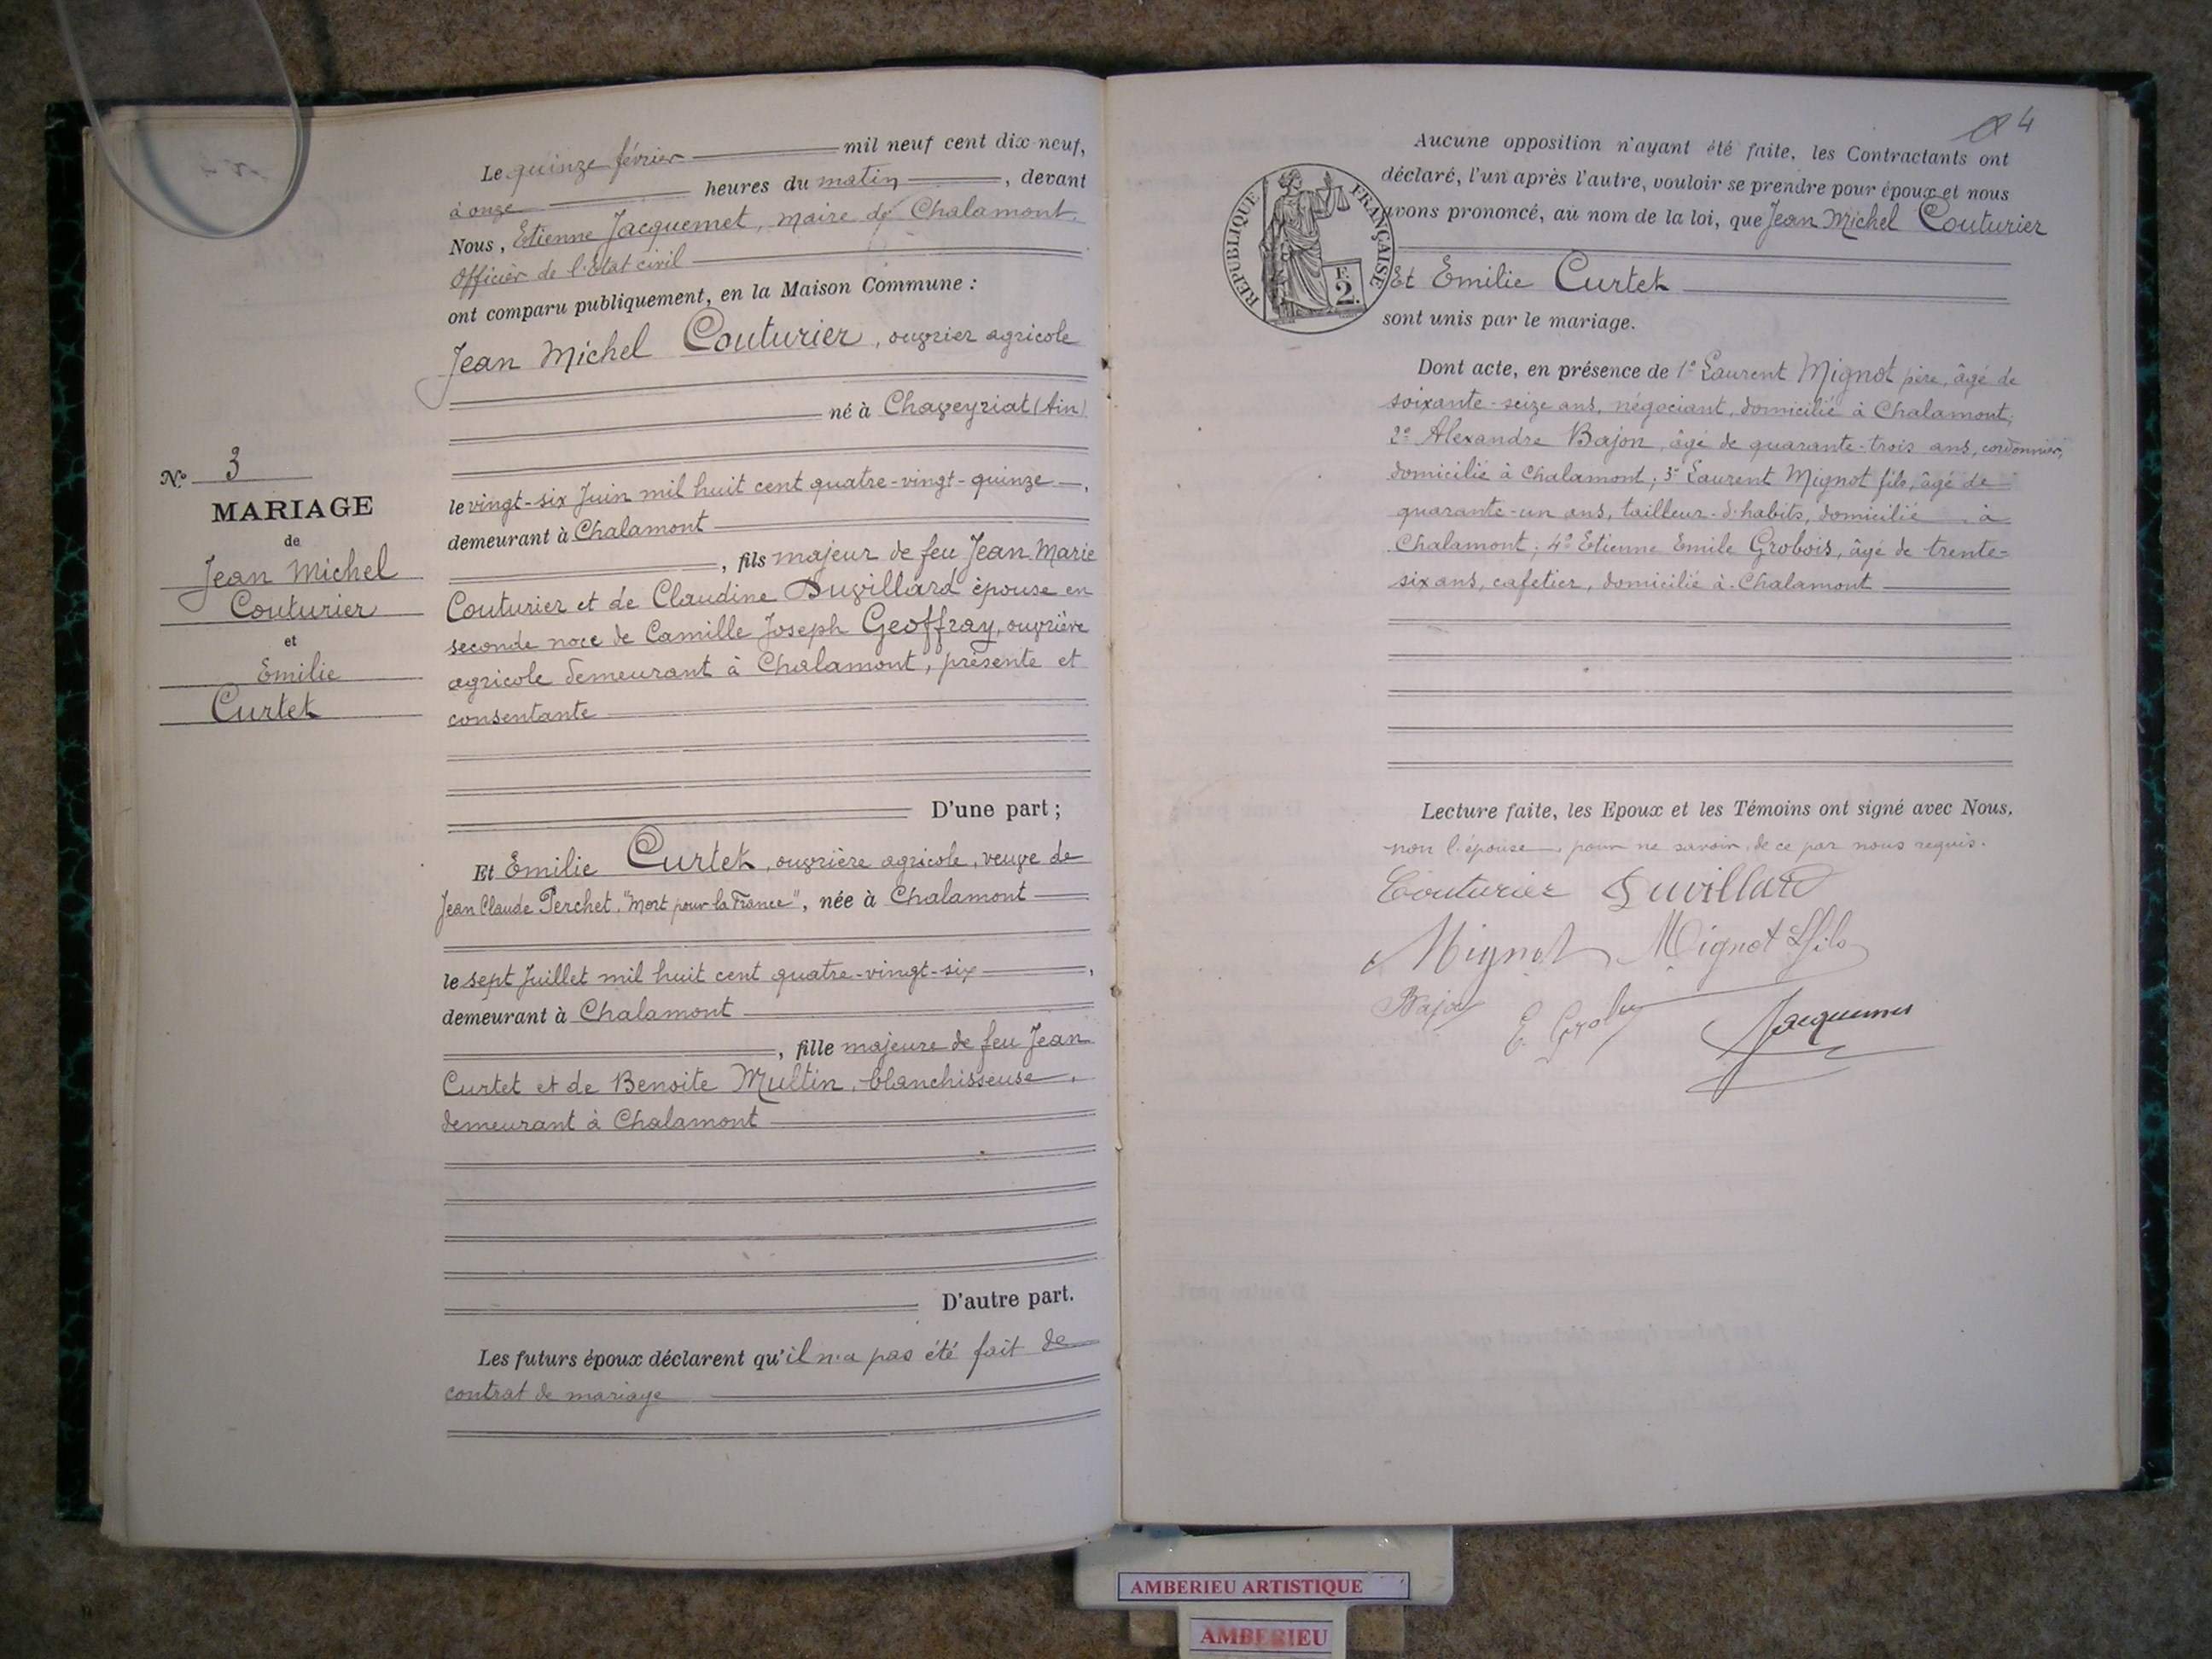 Le quinze février mil neuf cent dix-neuf,
à onze heures du matin, devant
Nous, Etienne Jacquemet, maire de Chalamont,
Officier de l'Etat civil
ont comparu publiquement, en la Maison Commune :
Jean Michel Couturier, ouvrier agricole
né à Chaveyriat (Ain)
le vingt-six Juin mil huit cent quatre-vingt-quinze,
demeurant à Chalamont
, fils majeur de feu Jean Marie
Couturier et de Claudine Duvillard épouse en
seconde noce de Camille Joseph Geoffray, ouvrière
agricole demeurant à Chalamont, présente et
consentante
D'une part ;
Et Emilie Curtet, ouvrière agricole, veuve de
Jean Claude Perchet, "Mort pour la France", née à Chalamont
le sept Juillet mil huit cent quatre-vingt-six,
demeurant à Chalamont
, fille majeure de feu Jean
Curtet et de Benoite Multin, blanchisseuse,
demeurant à Chalamont
D'autre part.
Les futurs époux déclarent qu'il n'a pas été fait de
contrat de mariage
No 3
MARIAGE
de
Jean Michel
Couturier
et
Emilie
Curtet
4
Aucune opposition n'ayant été faite, les Contractants ont
déclaré, l'un après l'autre, vouloir se prendre pour époux et nous
avons prononcé, au nom de la loi, que Jean Michel Couturier
Et Emilie Curtet
sont unis par le mariage.
RÉPUBLIQUE FRANÇAISE
F.
2.
Dont acte, en présence de 1º Laurent Mignot père, âgé de
soixante-seize ans, négociant, domicilié à Chalamont,
2º Alexandre Bajon, âgé de quarante-trois ans, cordonnier,
domicilié à Chalamont ; 3º Laurent Mignot fils, âgé de
quarante-un ans, tailleur-d'habits, domicilié à
Chalamont ; 4º Etienne Emile Grobois, âgé de trente-
six ans, cafetier, domicilié à Chalamont
Lecture faite, les Epoux et les Témoins ont signé avec Nous,
non l'épouse, pour ne savoir, de ce par nous requis.
Couturier Duvillard
Mignot Mignot L fils
Bajon E. Grobois Jacquemet
AMBERIEU ARTISTIQUE
AMBERIEU